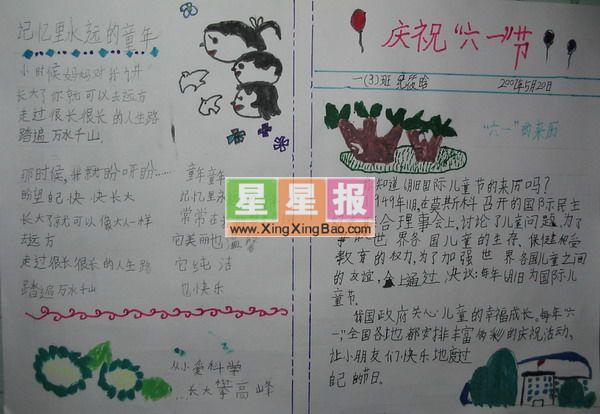 记忆里永远的童年
小时候妈妈对我讲
长大了你就可以去远方
走过很长很长的人生路
踏遍万水千山
那时候,我就盼呀盼……
盼望已快快长大
长大了就可以像大人一样
去远方
走过很长很长的人生路
踏遍万水千山
童年童年
记忆里永
常常在
它美丽也温馨
它纯洁
也快乐
从小爱科学
…长大攀高峰
庆祝“六一”节
一(3)班
2007年5月20日
“六一”的来历
知道6月1日国际儿童节的来历吗?
1949年11月,在莫斯科召开的国际民主
合理事会上,讨论了儿童问题,为了
世界各国儿童的生存、保健和受
教育的权力,为了加强世界各国儿童之间
的友谊,会上通过决议:每年6月1日为国际儿
童节。
我国政府关心儿童的幸福成长。每年“六
一”,全国各地都安排丰富多彩的庆祝活动,
让小朋友们快乐地度过
自己的节日。
星星报
www.XingXingBao.com